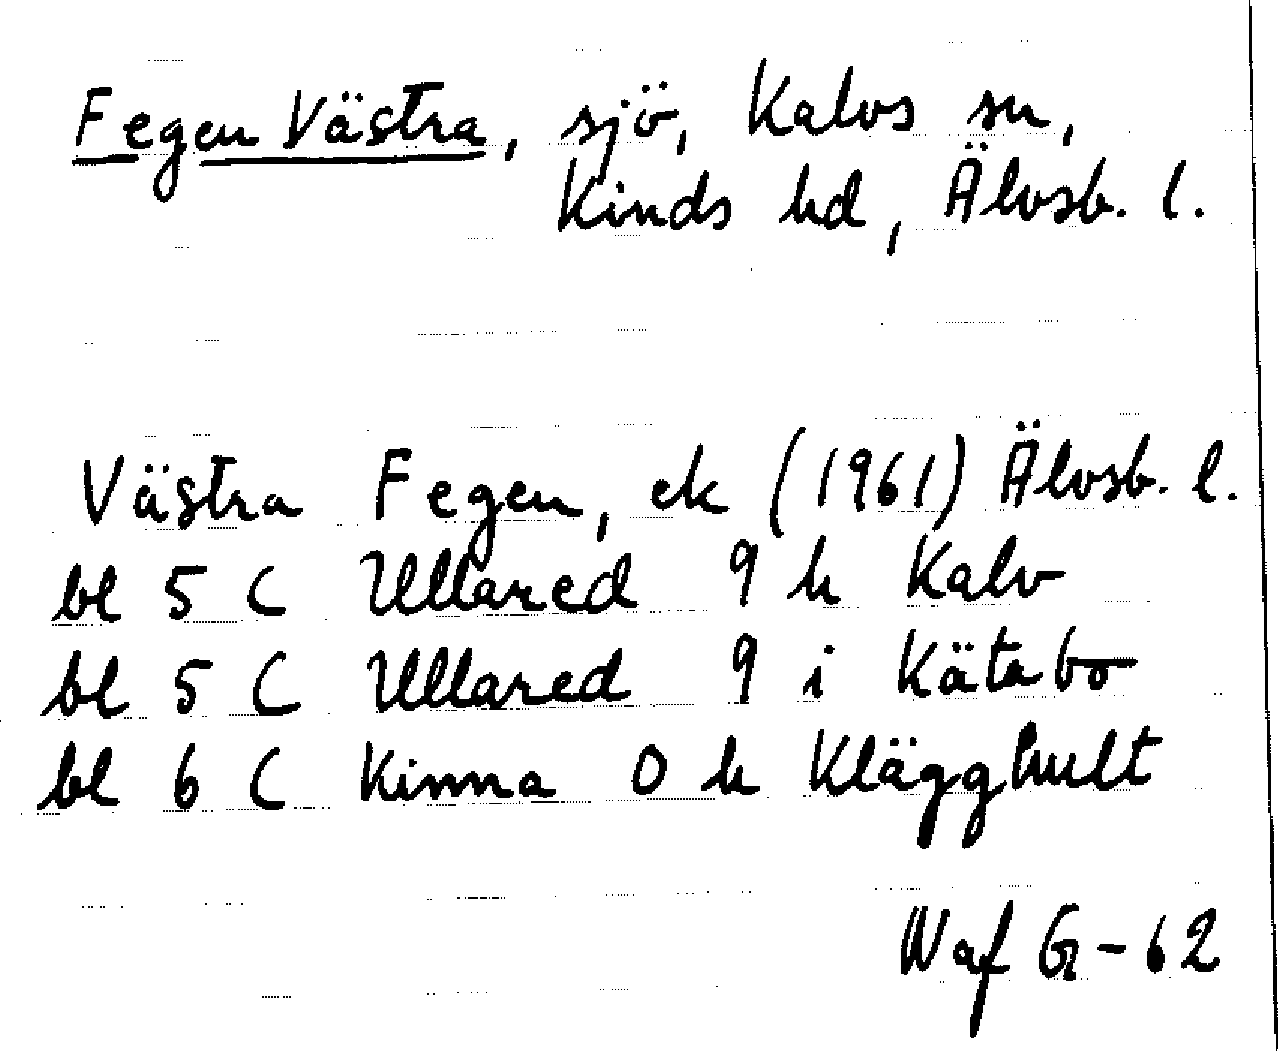 Fegen Västra, sjö, Kalvs sn,
Kinds hd, Älvsb. l.
Västra Fegen, ek (1961) Älvsb. l.
bl 5 C Ullared 9 h Kalv
bl 5 C Ullared 9 i Kätabo
bl 6 C Kinna 0 h Klägghult
Waf G-62